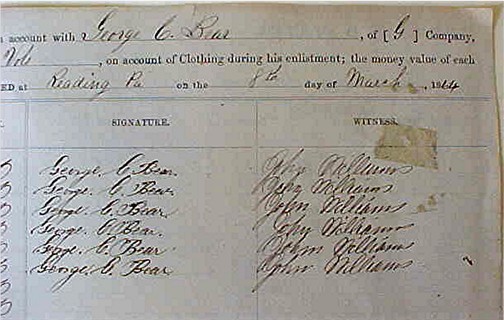 account with George C. Bear, of [ G ] Company,
Vols, on account of Clothing during his enlistment; the money value of each
ED at Reading Pa on the 8th day of March, 1864
SIGNATURE. WITNESS.
George. C. Bear. John Williams
George. C. Bear John Williams
George. C. Bear John Williams
George. C. Bear. John Williams
George. C. Bear John Williams
George. C. Bear John Williams